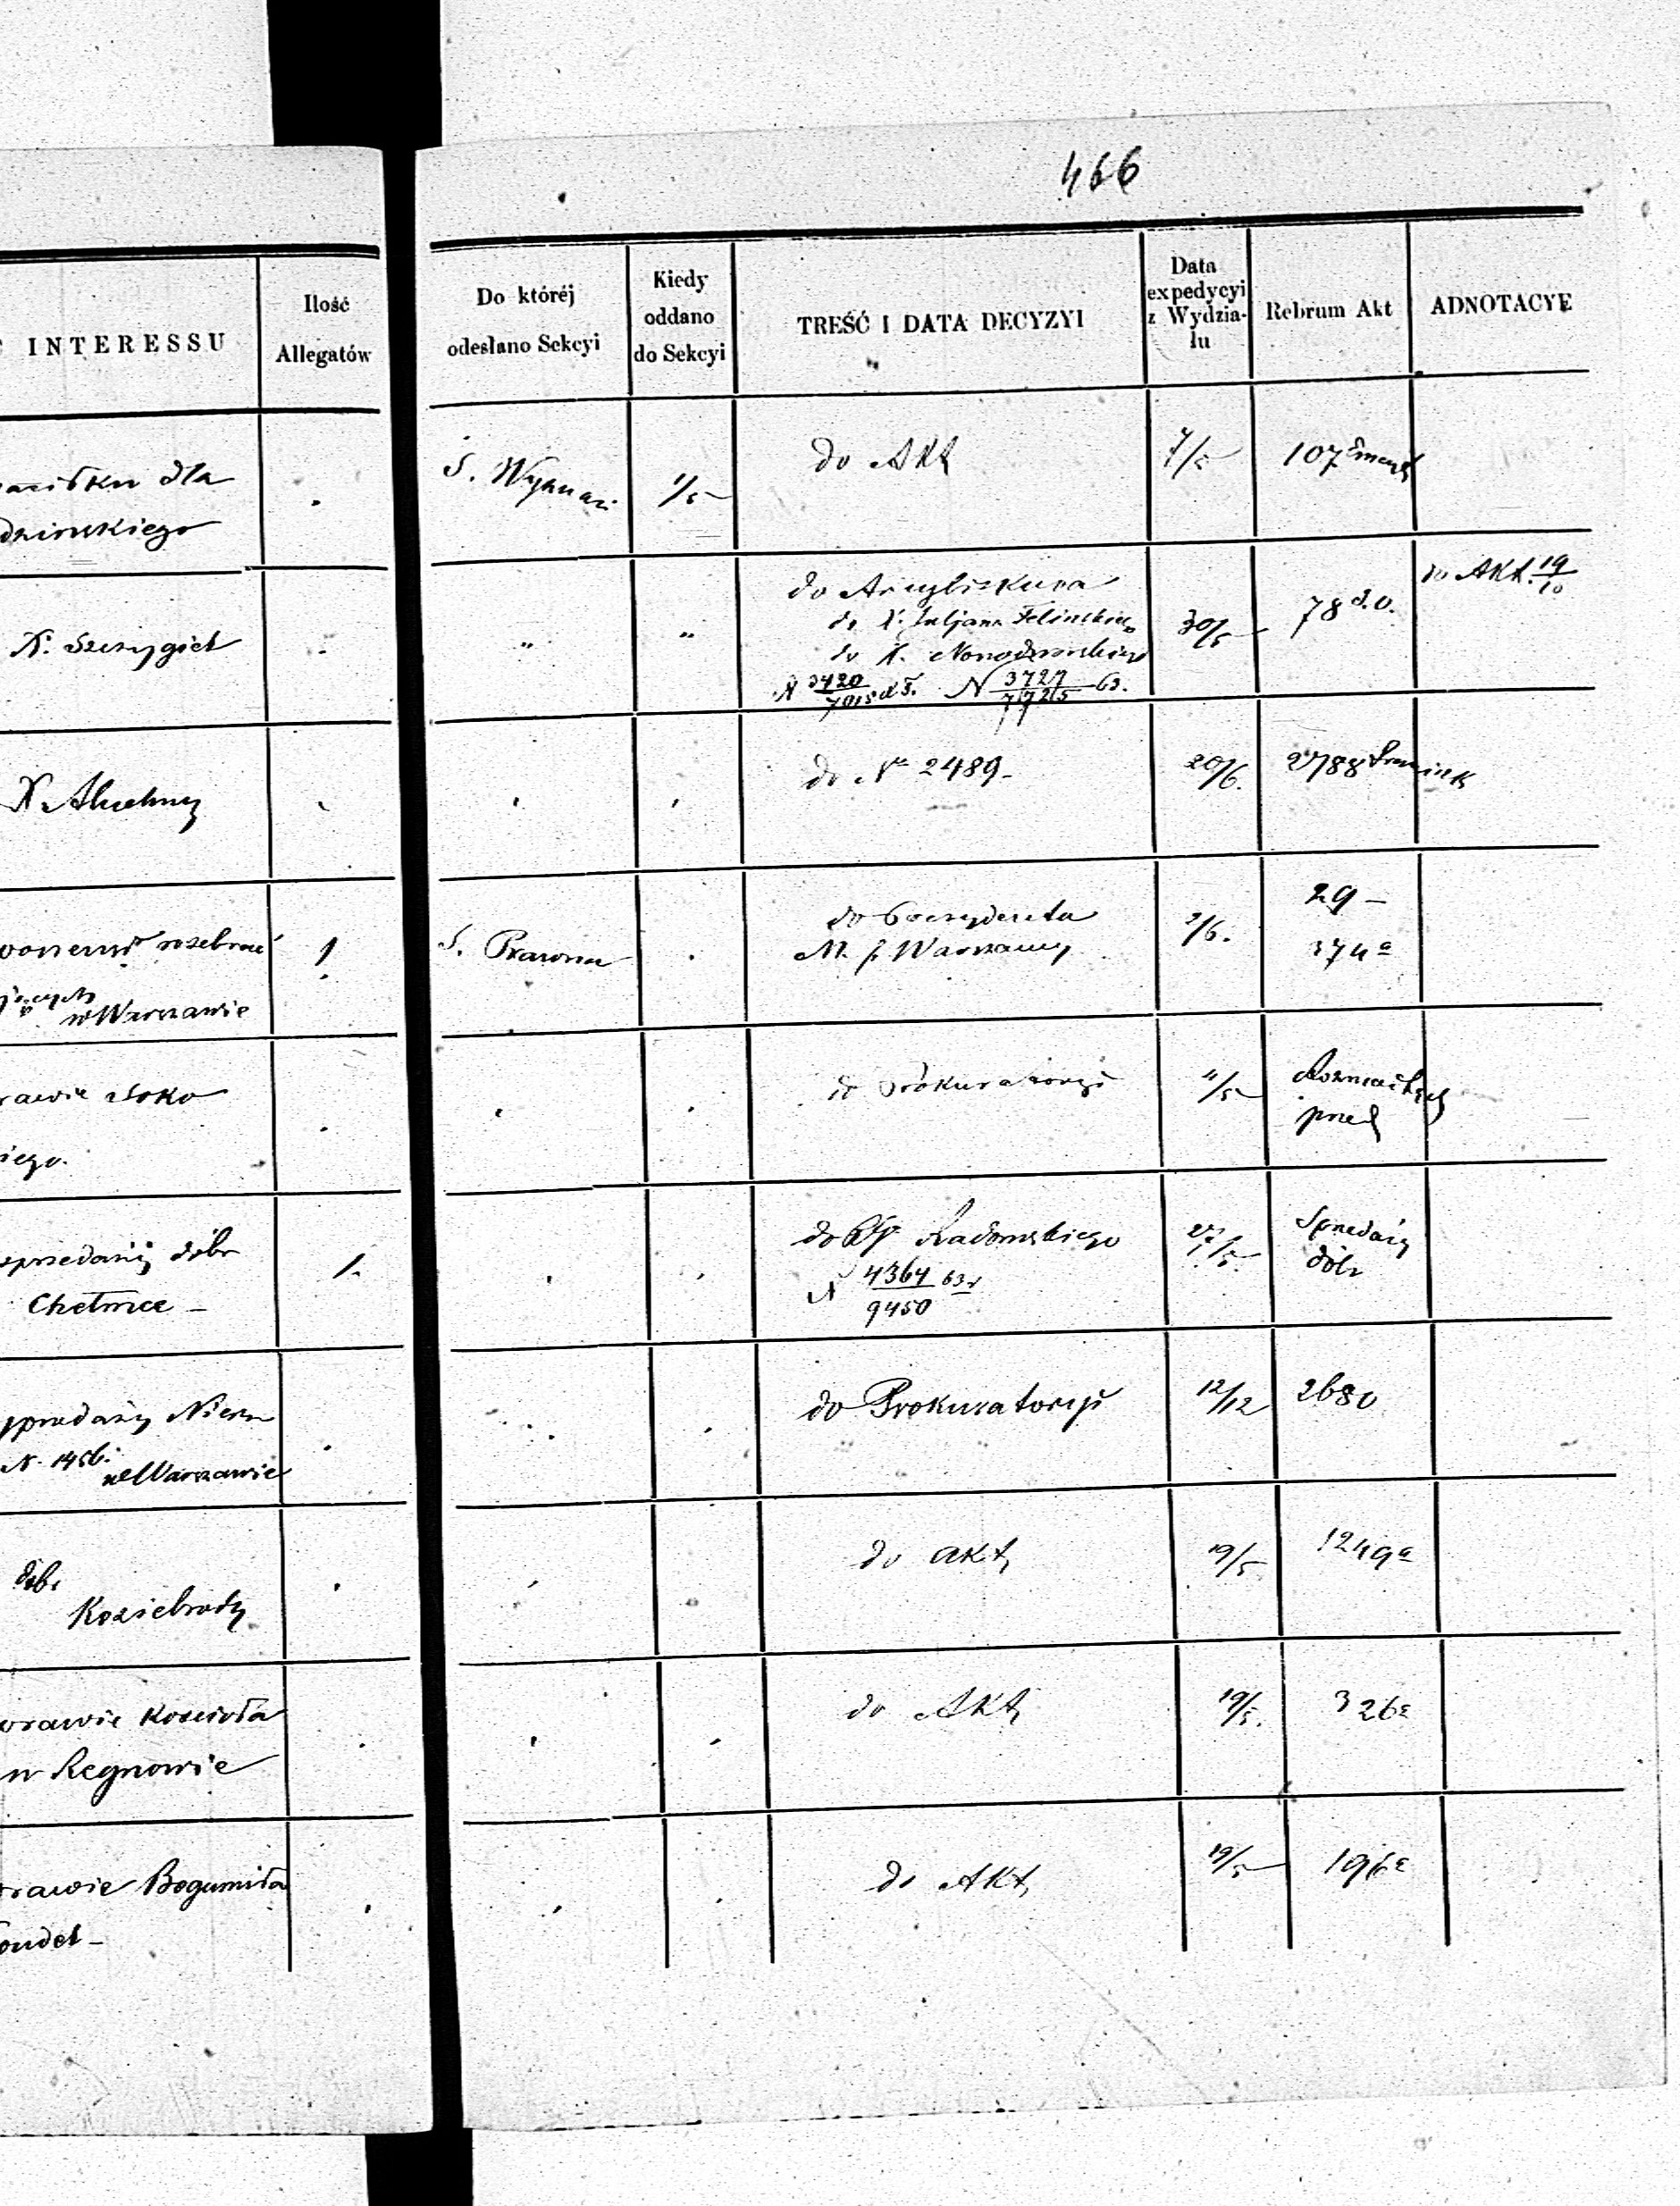 466
INTERESSU
Ilość
Allegatów
Do któréj
odesłano Sekcyi
Kiedy
oddano
do Sekcyi
TREŚĆ I DATA DECYZYI
Data
expedycyi
z Wydzia-
łu
Rebrum Akt
ADNOTACYE
dla
S.
1/5
do Akt
7/5
107
X. Szczygieł
"
"
do Arcybiskupa
do X. Juljana Felińskiego
do X. Nowodworskiego
N 3727/7725 63.
30/5
78 d.O.
do Akt. 19/10
X.
do No 2489.
20/6.
2788
rozebrać
w Warszawie
1
S. Prawna
do Prezydenta
M. S. Warszawy
2/6.
29 –
374a
rawie Soko
iego.
do Prokuratoryi
4/5
Rozmaitych
przed
sprzedaży dóbr
Chełmce –
1.
do Radomskiego
N 4364/9450 63r
27/5.
Sprzedaży
dóbr
sprzedaży Nieru
N. 1456.
w Warszawie
do Prokuratoryi
12/12
2680
dóbr
Koziebrody
do akt
19/5
1249a
prawie Kościoła
w Regnowie
do Akt
19/5.
326a
prawie Bogumiła
ondel –
do Akt
19/5
196a